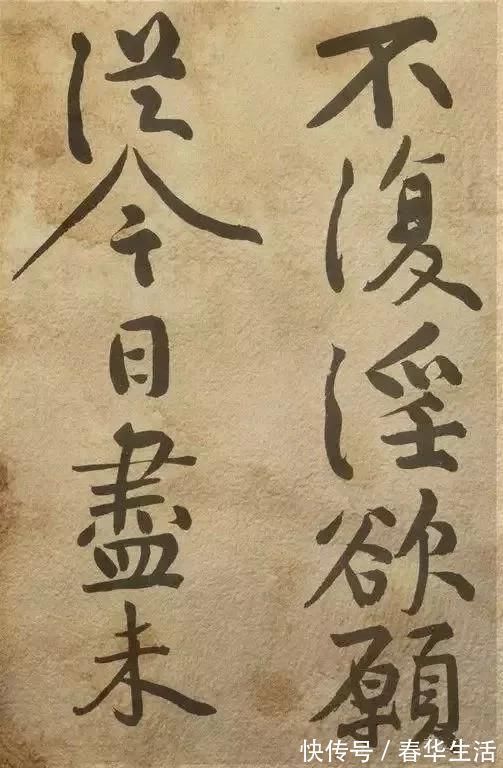 不復淫欲願
從今日盡未
快传号 / 春华生活